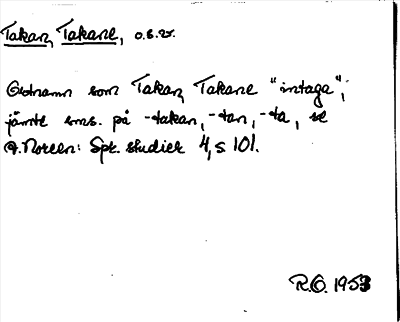 Takan, Takane, o.s.v.
Ortnamn som Takan, Takane "intaga";
jämte sms. på -takan, -tan, -ta, se
A. Noreen: Spr. studier 4, s 101.
R.O. 1953